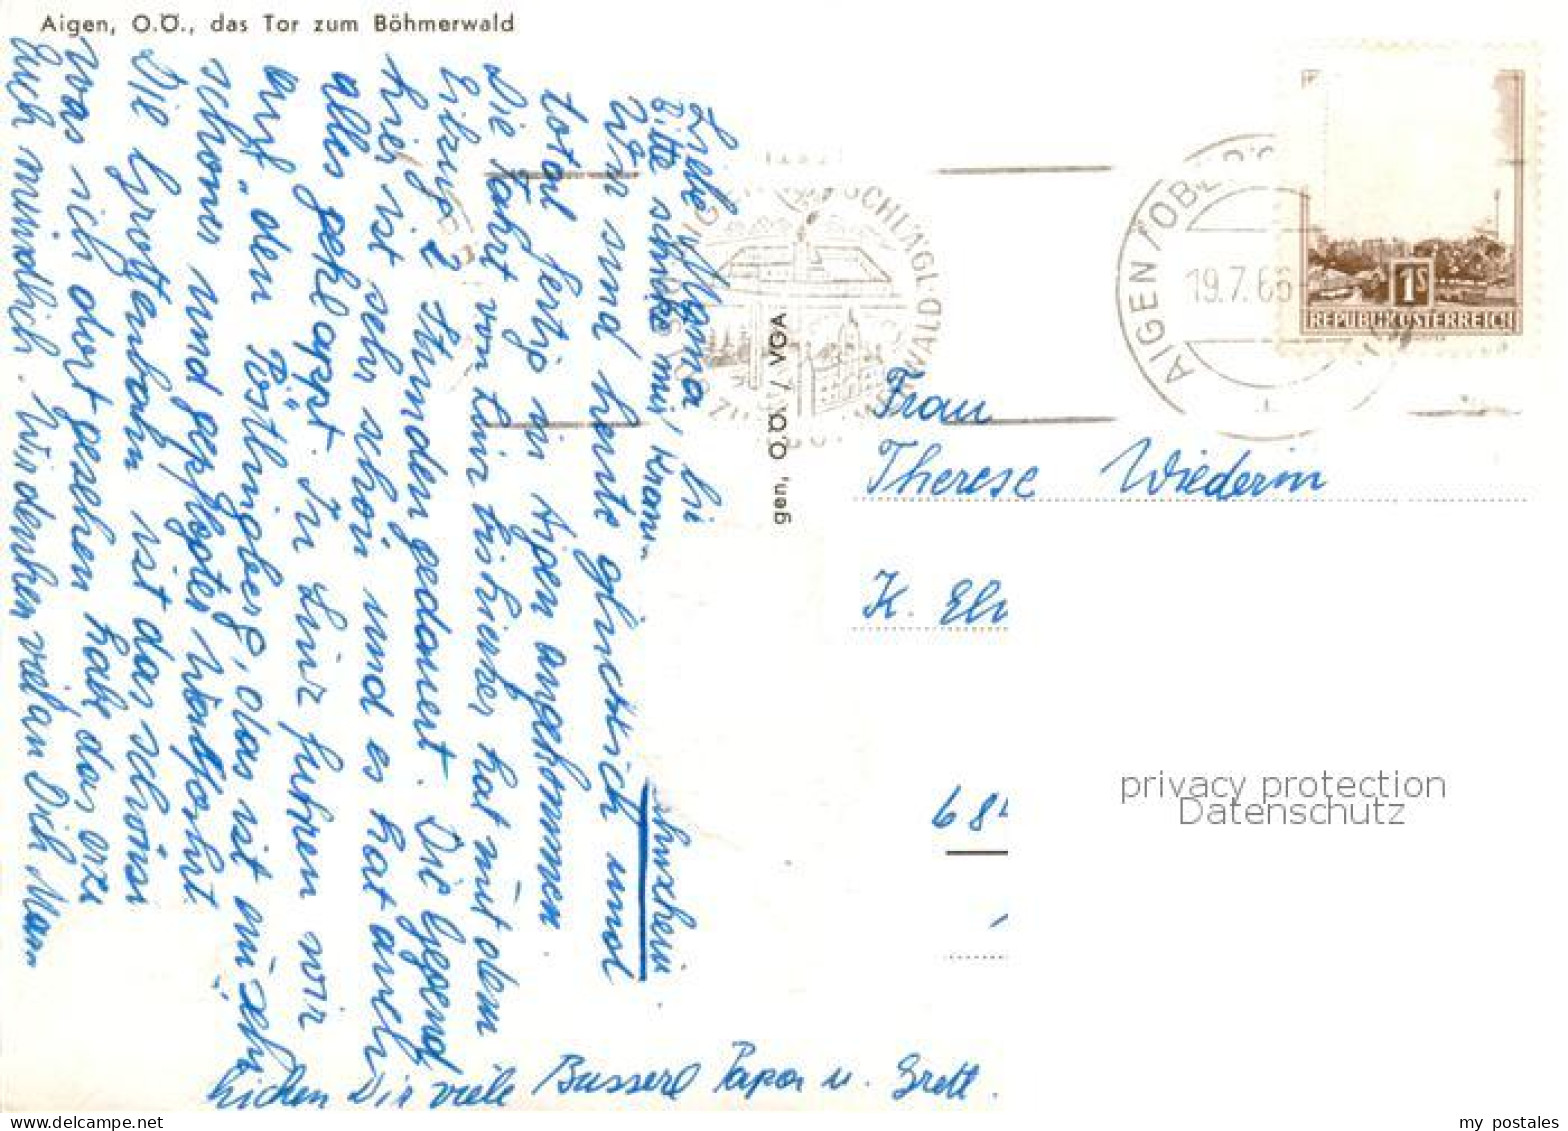 Aigen, O.Ö., das Tor zum Böhmerwald
Liebe Mama bi
Bitte schicke mir Kran-
kenschein.
Wir sind heute glücklich und
total fertig in Aigen angekommen.
Die Fahrt von Linz bis hierher hat mit dem
Eilzug 2 Stunden gedauert. Die Gegend
hier ist sehr schön und es hat auch
alles geklappt. In Linz fuhren wir
auf den "Pöstlingberg", das ist ein sehr
schöner und gepflegter Wallfahrt
Die Grottenbahn ist das schönste
was ich dort gesehen habe das erzä
Euch mündlich. Wir denken viel an Dich Mam
schicken Dir viele Busserl Papa u. Gretl.
gen, O.Ö. / VGA
AIGEN / OBERÖS
19.7.66
SCHLÄGL
1S
REPUBLIK ÖSTERREICH
Frau
Therese Wiederin
K.
68
privacy protection
Datenschutz
my postales